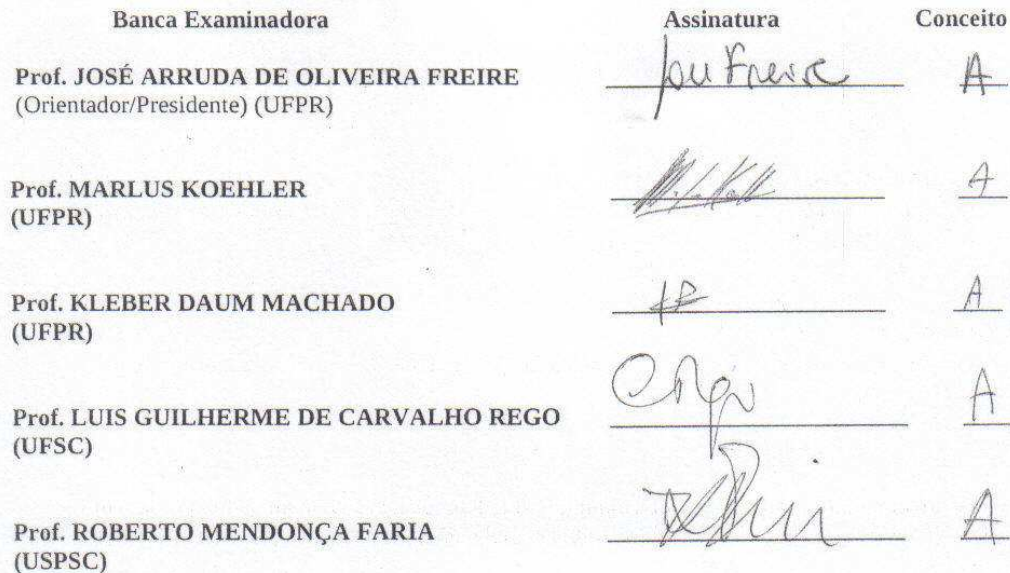 Banca Examinadora Assinatura Conceito
Prof. JOSÉ ARRUDA DE OLIVEIRA FREIRE José Freire A
(Orientador/Presidente) (UFPR)
Prof. MARLUS KOEHLER A
(UFPR)
Prof. KLEBER DAUM MACHADO A
(UFPR)
Prof. LUIS GUILHERME DE CARVALHO REGO A
(UFSC)
Prof. ROBERTO MENDONÇA FARIA A
(USPSC)